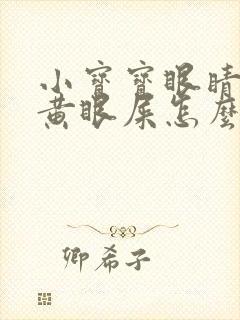 小寶寶眼睛
黃眼屎怎麼
卿希子